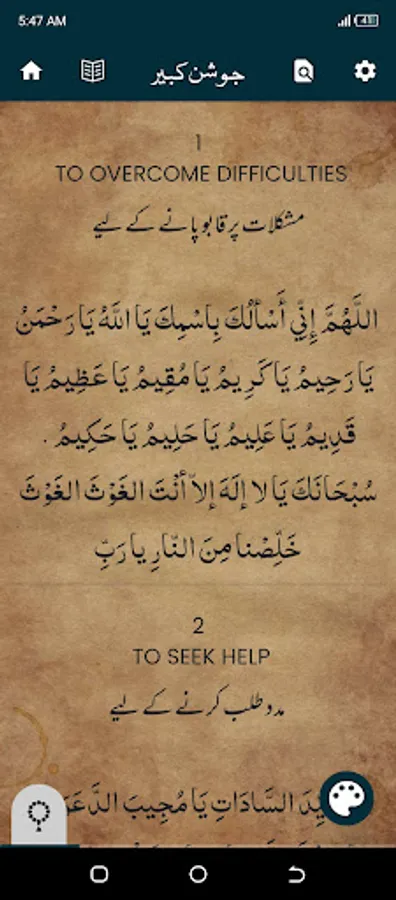 5:47 AM
48
جوشن کبیر
1
TO OVERCOME DIFFICULTIES
مشکلات پر قابو پانے کے لیے
اللَّهُمَّ إِنِّي أَسْأَلُكَ بِاسْمِكَ يَا اللَّهُ يَا رَحْمَنُ
يَا رَحِيمُ يَا كَرِيمُ يَا مُقِيمُ يَا عَظِيمُ يَا
قَدِيمُ يَا عَلِيمُ يَا حَلِيمُ يَا حَكِيمُ .
سُبْحَانَكَ يَا لا إِلَهَ إِلاّ أنْتَ الغَوْثَ الغَوْثَ
خَلِّصْنا مِنَ النّارِ يا رَبِّ
2
TO SEEK HELP
مدد طلب کرنے کے لیے
السَّادَاتِ يَا مُجِيبَ